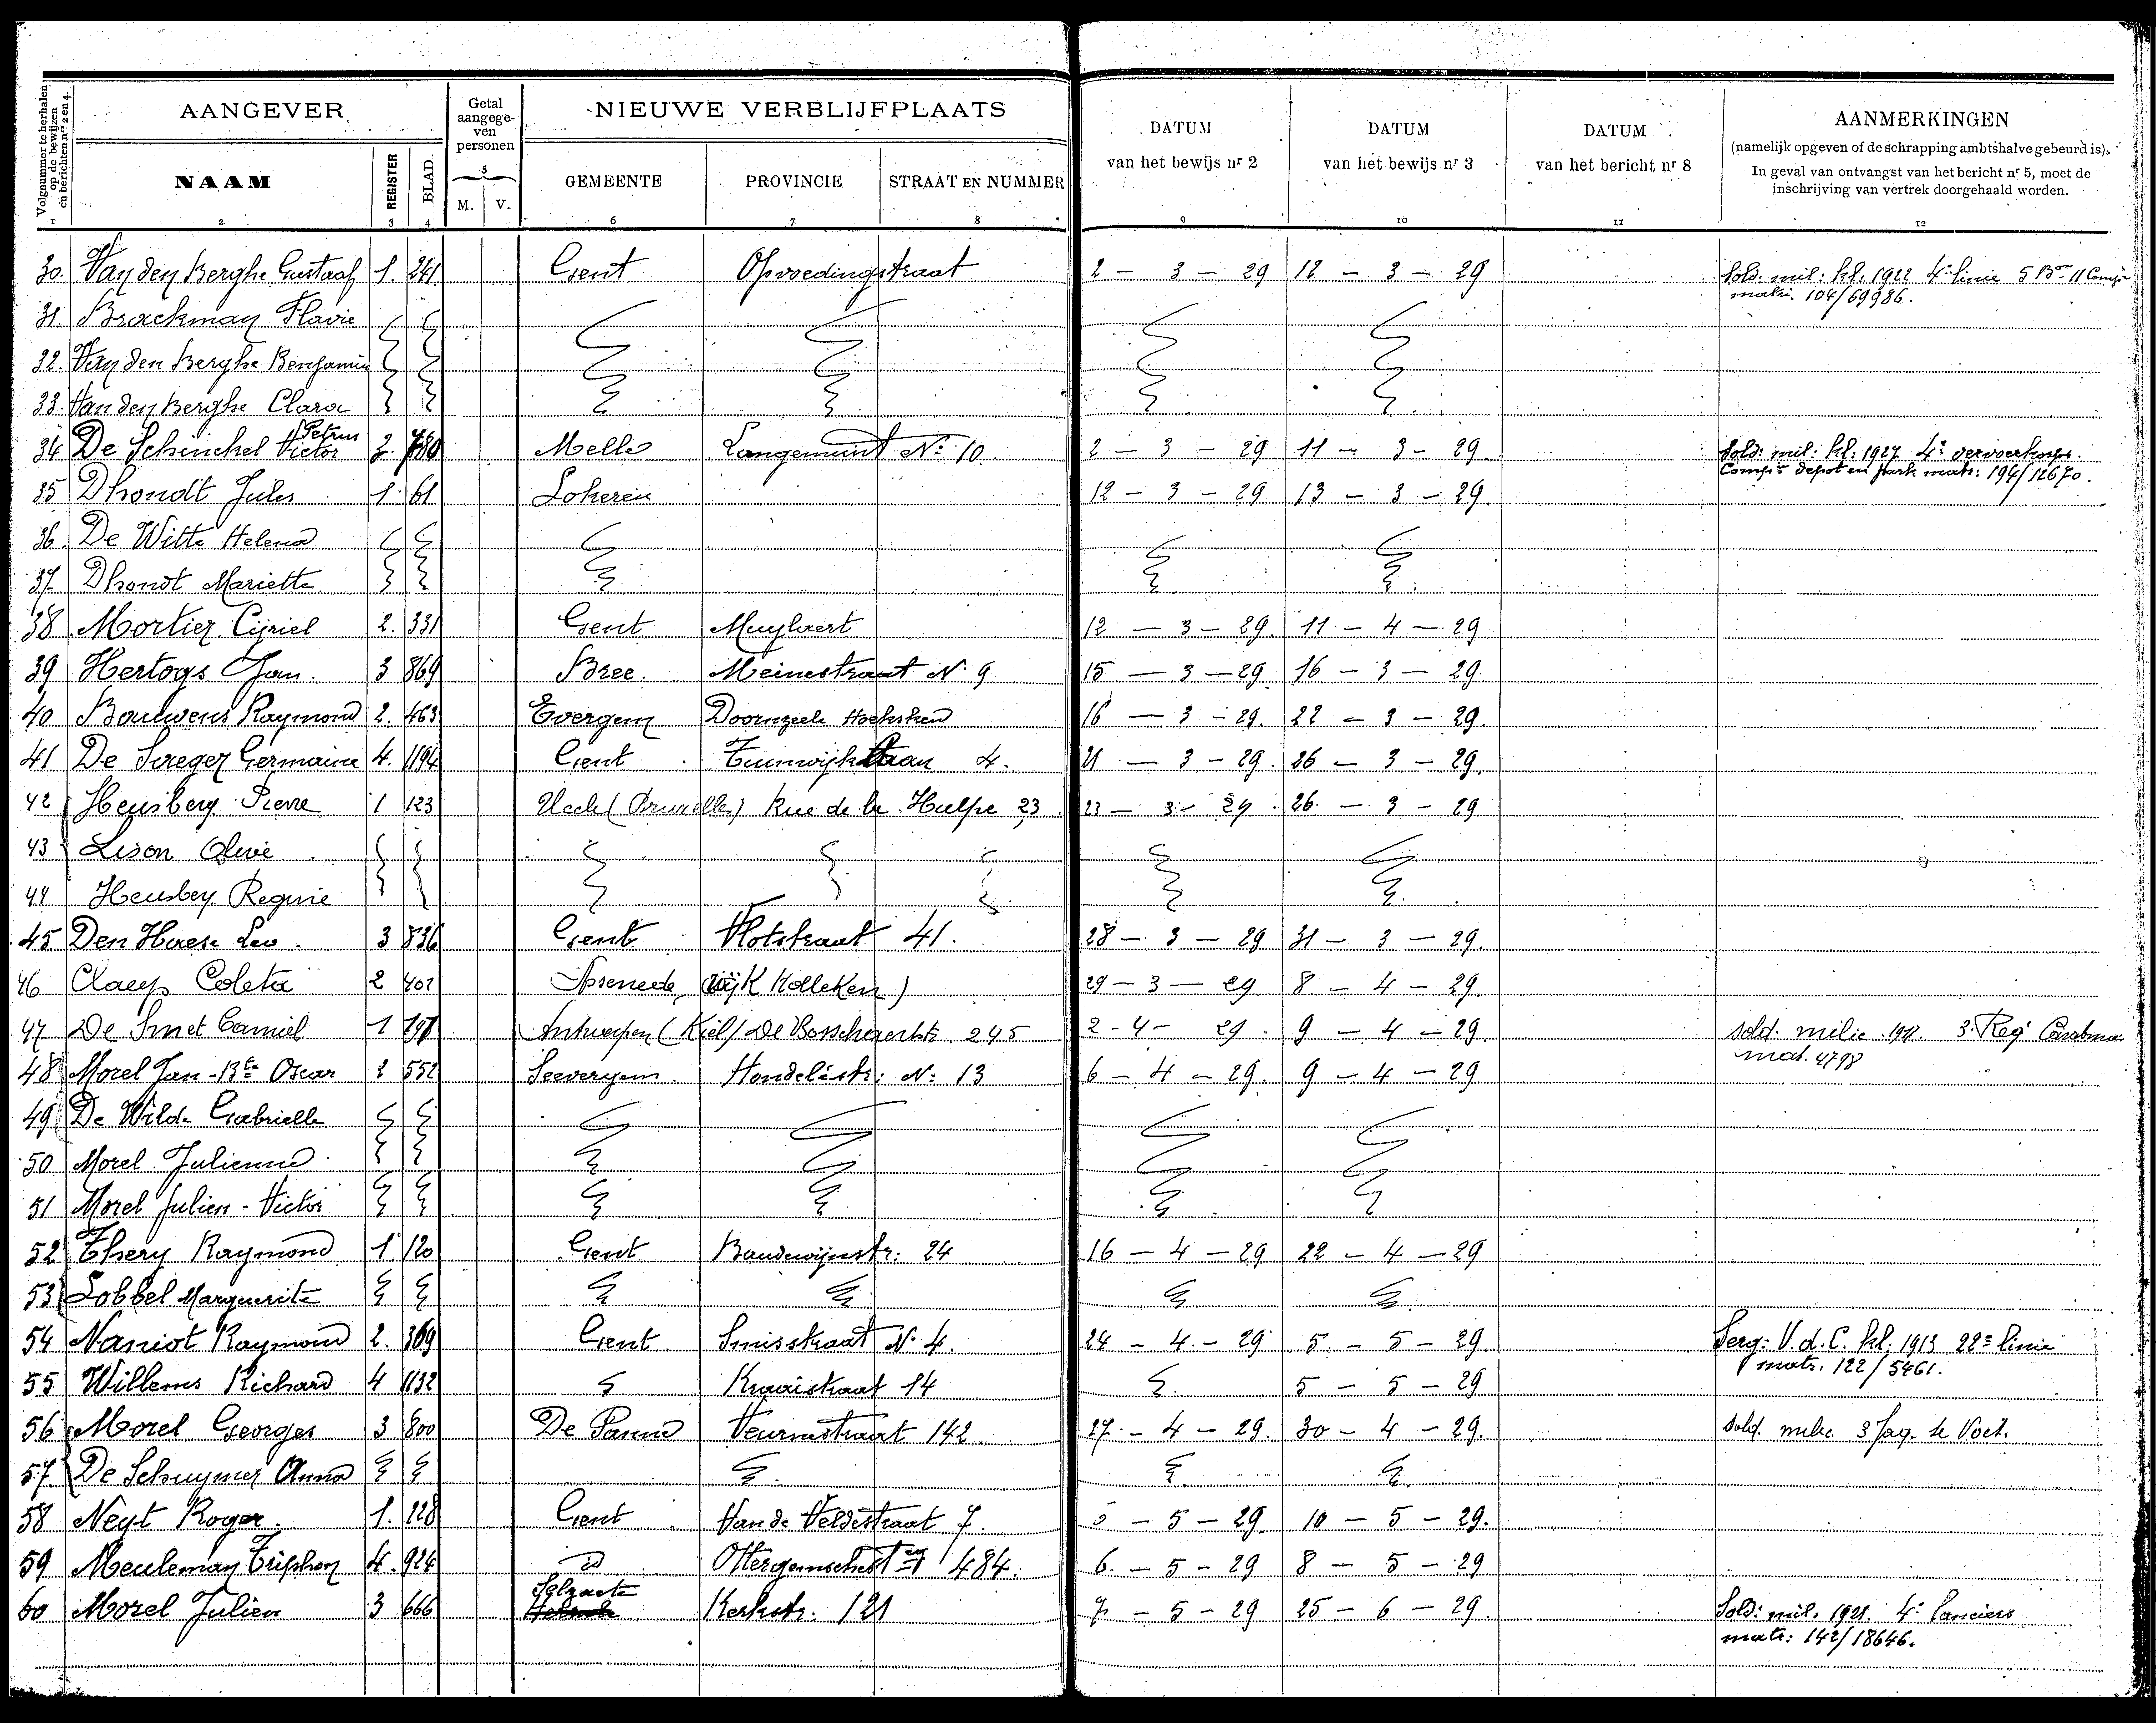 Volgnummer te herhalen op de bewijzen en berichten nrs 2 en 4.
AANGEVER
Getal aangege-ven personen
NIEUWE VERBLIJFPLAATS
DATUM van het bewijs nr 2
DATUM van het bewijs nr 3
DATUM van het bericht nr 8
AANMERKINGEN
(namelijk opgeven of de schrapping ambtshalve gebeurd is).
In geval van ontvangst van het bericht nr 5, moet de
inschrijving van vertrek doorgehaald worden.
NAAM REGISTER BLAD 5 M. V. GEMEENTE PROVINCIE STRAAT EN NUMMER
1 2 3 4 6 7 8 9 10 11 12
30. Van den Berghe Gustaaf 1. 241 Gent Opvoedingstraat 2 - 3 - 29 12 - 3 - 29 Sold. mil: kl: 1922 4e linie 5 Bon 11 Comp
matr. 104/69986.
31. Braekman Flavie
32. Van den Berghe Benjamin
33. Van den Berghe Clara
34 De Schinckel Victor Petrus 2. 780 Melle Langemunt No 10 2 - 3 - 29 11 - 3 - 29 Sold: mil: kl: 1927 4e vervoerkorps.
Compie depot en park matr: 194/12670.
35 Dhondt Jules 1. 61 Lokeren 12 - 3 - 29 13 - 3 - 29.
36. De Witte Helena
37 Dhondt Mariette
38 Mortier Cijriel 2. 331 Gent Muylaert 12 - 3 - 29. 11 - 4 - 29
39 Hertogs Jan. 3 869 Bree. Meinestraat No 9 15 - 3 - 29 16 - 3 - 29.
40 Bauwens Raymond 2. 463 Evergem Doornzeele Hoeksken 16 - 3 - 29. 22 - 3 - 29.
41 De Sreger Germaine 4. 1194 Gent Tuinwijklaan 4. 21 - 3 - 29. 26 - 3 - 29.
42 Heusberg Pierre 1 123 Uccle (Bruxelles) Rue de la Hulpe 23 23 - 3 - 29. 26 - 3 - 29
43 Lison Olive
44 Heusbeg Regine
45 Den Haese Leo. 3 836 Gent Vlotstraat 41. 28 - 3 - 29 31 - 3 - 29.
46 Claeys Coleta 2 402 Assenede, (wijk Holleken) 29 - 3 - 29 8 - 4 - 29.
47 De Smet Camiel 1 197 Antwerpen (Kiel) De Bosschaertstr. 245 2 - 4 - 29. 9 - 4 - 29. sold. milic. 3. Reg
mat. 4798
48 Morel Jan-Bte Oscar 2 552 Seevergem. Hondelestr: No 13 6 - 4 - 29. 9 - 4 - 29
49 De Wilde Gabrielle
50 Morel Julienne
51 Morel Julien - Victor
52 Thery Raymond 1 120 Gent Boudewijnstr: 24 16 - 4 - 29 22 - 4 - 29
53 Lobbel Marguerite
54 Naniot Raymond 2. 369 Gent Smisstraat No 4. 24 - 4 - 29 5 - 5 - 29 Serg: V.d.C. kl. 1913 22e linie
matr. 122/5461.
55 Willems Richard 4 1132 Kraaistraat 14 5 - 5 - 29
56 Morel Georges 3 800 De Panne Veurnestraat 142 27 - 4 - 29. 30 - 4 - 29. sold. milic. 3 Jag. te Voet.
57 De Schuymer Anna
58 Neyt Roger. 1. 228 Gent Van de Veldestraat 7. 5 - 5 - 29. 10 - 5 - 29.
59 Meuleman Triphon 4. 924 id Ottergemschesteg 484. 6. - 5 - 29 8 - 5 - 29
60 Morel Julien 3 666 Selzaete Kerkstr. 121 7 - 5 - 29 25 - 6 - 29. Sold: mil. 1921. 4e lanciers
matr: 142/18646.